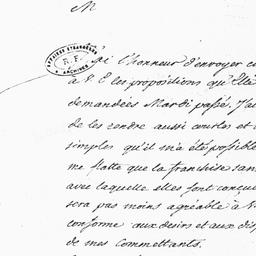 M
AFFAIRES ETRANGERES
R. F.
ARCHIVES
J'ai l'honneur d'envoyer
à V. E. les propositions qu'Elle
demandées Mardi passé. J'ai
de les rendre aussi courtes et
simples qu'il m'a été possible
me flatte que la franchise
avec laquelle elles sont conçu
sera pas moins agréable à
conforme aux desirs et aux dis
de mes Commettants.